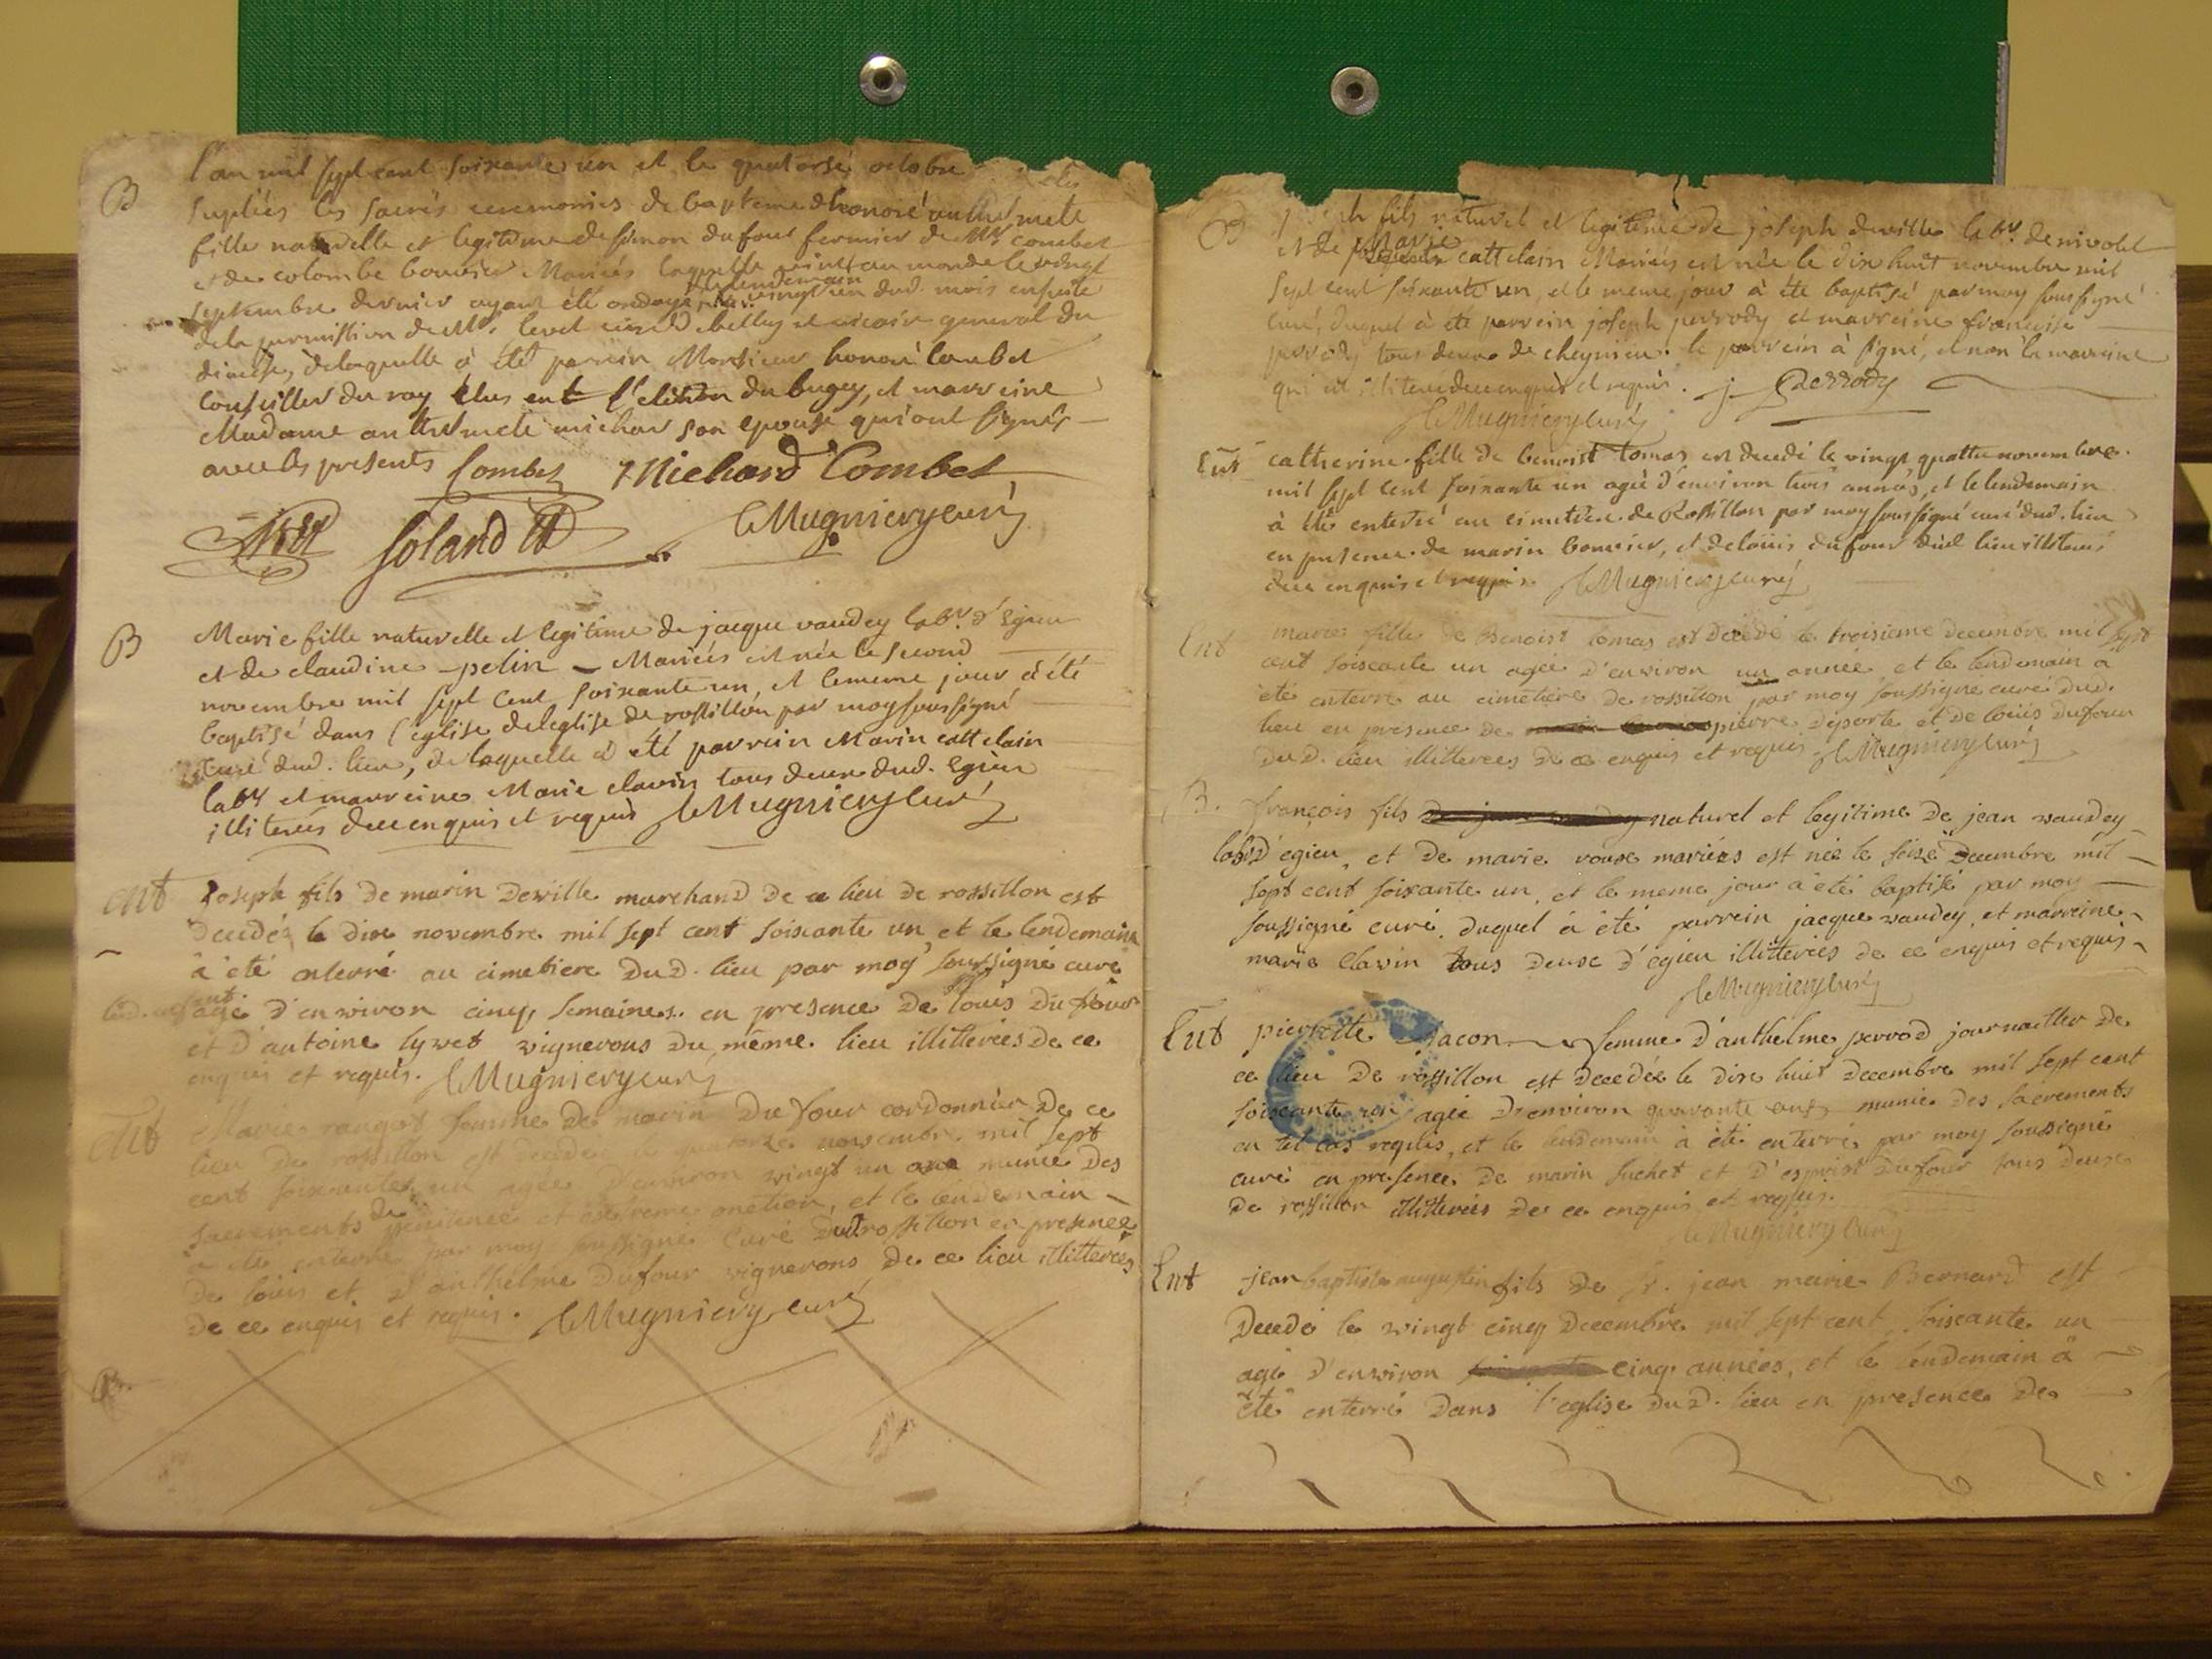 B
l'an mil sept cent soixante un et le quatorse octobre
supliées les sacrés ceremonies de bapteme d'honoré anthelmete
fille naturelle et legitime de simon dufour fermier de Mr combet
et de colombe bouvier Mariés laquelle vint au monde le vingt
septembre dernier ayant été ondoyé le lendemain vingt un dud. mois ensuite
de la permission de Mr. curé de belley et vicaire general du
diocese, de laquelle à été parrein Monsieur honoré Combet
Conseiller du roy elus en l'election du bugey, et marreine
Madame anthelmete michar son epouse qui ont signés
avec les presents Combet Michard Combet
Soland Mugniery curé
B
Marie fille naturelle et legitime de jacque vaudey labr. d'Egieu
et de claudine pelin Mariés est née le second
novembre mil sept cent soixante un, et le meme jour à été
baptisé dans l'eglise de leglise de rossillon par moy soussigné
Curé dud. lieu, de laquelle à été parrein Marin cattelain
labr et marreine Marie clavin tous deux dud. Egieu
illiterés de ce enquis et requis Mugniery Curé
ent
Joseph fils de marin Deville marchand de ce lieu de rossillon est
decedé le dix novembre mil sept cent soixante un, et le lendemain
à été enterré au cimetiere Dud. lieu par moy soussigné curé
agé d'environ cinq semaines. en presence de louis Du four
et d'antoine lyvet vignerons du même lieu illitterées de ce
enquis et requis. Mugniery curé
Ent
Marie rangot femme de marin Du four cordonnier de ce
lieu de rossillon est decedée le quatorze novembre mil sept
cent soixante un agée d'environ vingt un ans munie des
sacrements de penitence et extreme onction, et le lendemain
à été enterré par moy soussigné Curé dud. rossillon en presence
de louis et d'anthelme Dufour vignerons de ce lieu illitterées
de ce enquis et requis. Mugniery curé
B
joseph fils naturel et legitime de joseph deville labr. de nivolet
et de Marie cattelain Mariés est née le dix huit novembre mil
sept cent soixante un, et le meme jour à été baptisé par moy soussigné
curé, duquel à été parrein joseph perrody et marreine francoise
perrody tous deux de cheynieu. le parrein à signé, et non la marreine
qui est illiteré de ce enquis et requis. j. Perrody
Mugniery curé
Ent
catherine fille de benoist tomas est decedé le vingt quattre novembre
mil sept cent soixante un agée d'environ trois années, et le lendemain
à été enterré au cimetiere de Rossillon par moy soussigné curé dud. lieu
en presence de marin bouvier, et de louis dufour dud. lieu illiterés
de ce enquis et requis. Mugniery curé
Ent
marie fille de Benoist tomas est decedé le troisieme decembre mil sept
cent soixante un agée d'environ un année et le lendemain à
été enterre au cimetiere de rossillon par moy soussigné curé dud.
lieu en presence de pierre deporte et de louis Dufour
Dud. lieu illitterees de ce enquis et requis Mugniery Curé
B.
françois fils naturel et legitime de jean vaudey
labr d'egieu, et de marie rouse mariées est née le seise Decembre mil
sept cent soixante un, et le meme jour à été baptisé par moy
soussigné curé, duquel à été parrein jacque vaudey, et marreine
marie Clavin tous deux d'egieu illitterées de ce enquis et requis
Mugniery Curé
Ent
pierrette jacon femme d'anthelme perrod journallier de
ce lieu de rossillon est decedée le dix huit decembre mil sept cent
soixante un agée d'environ quarante ans munie des sacrements
en tel cas requis, et le lendemain à été enterré par moy soussigné
curé en presence de marin suchet et d'esprist Dufour tous deux
de rossillon illitterées de ce enquis et requis.
Mugniery Curé
Ent
jean baptiste augustin fils de Sr. jean marie Bernard est
Decedé le vingt cinq Decembre mil sept cent soixante un
agé d'environ cinq années, et le lendemain à
été enterré dans l'eglise dud. lieu en presence de